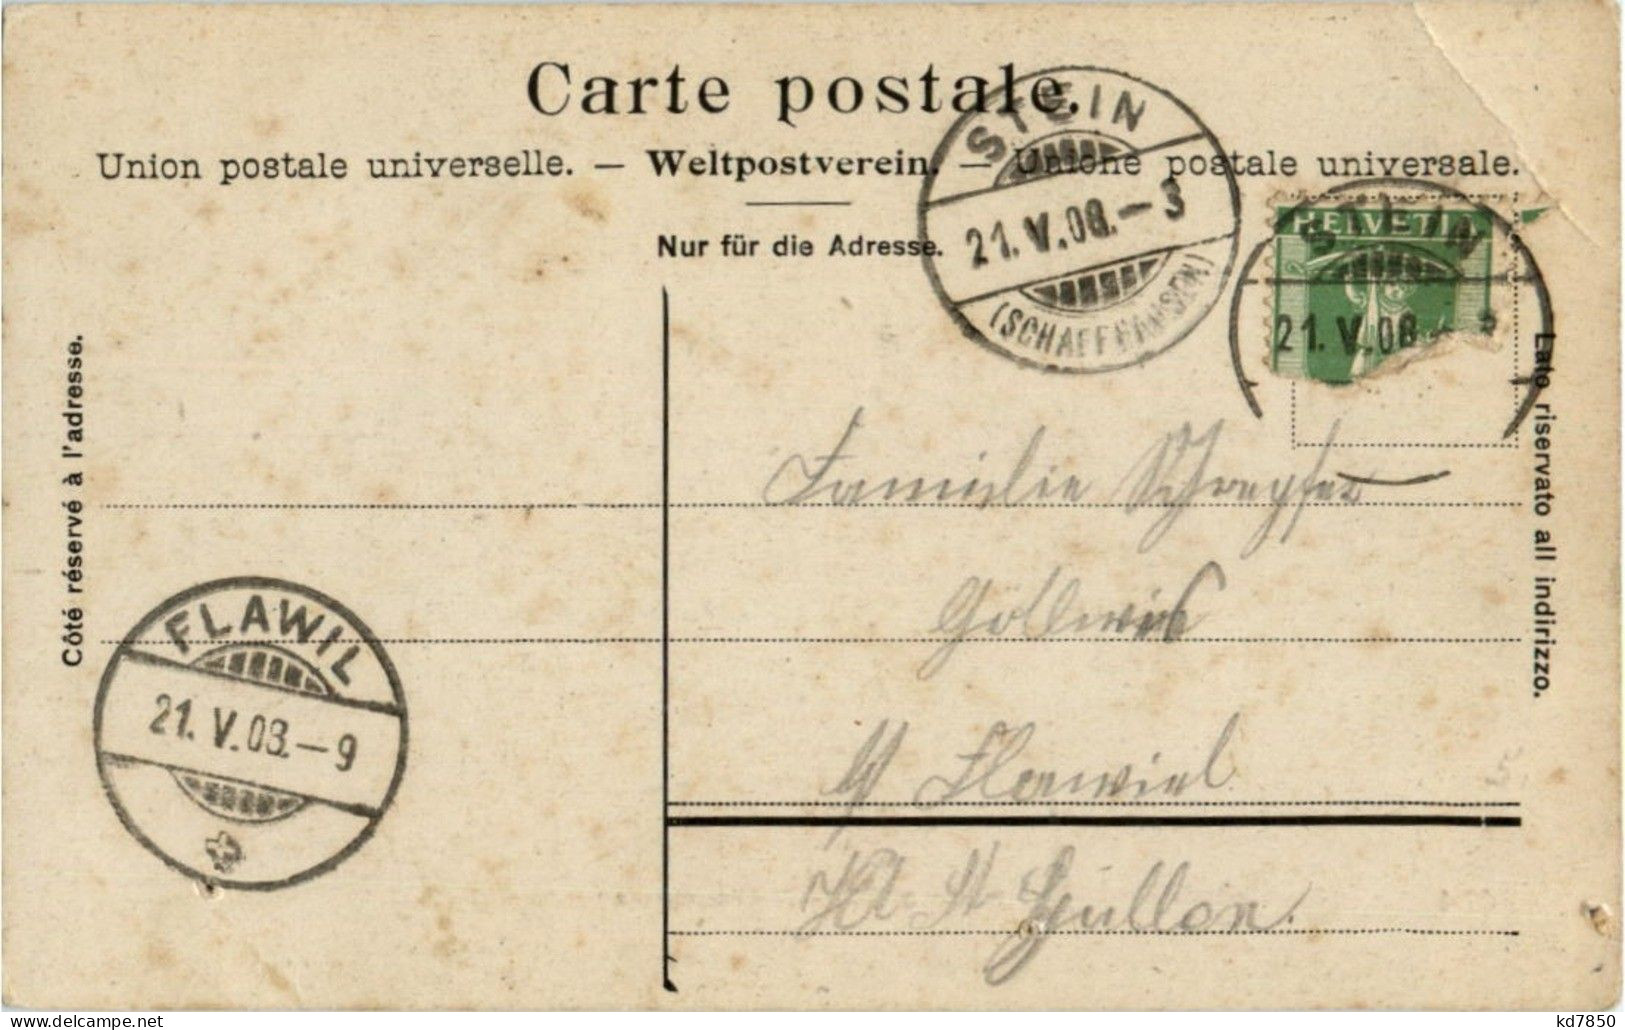 Carte postale.
Union postale universelle. — Weltpostverein. — Unione postale universale.
Nur für die Adresse.
STEIN
21. V. 08. – 3
(SCHAFFHAUSEN)
HELVETIA
STEIN
21. V. 08
Côté réservé à l'adresse.
Lato riservato all indirizzo.
Familie Schrepfer
FLAWIL
21. V. 08. – 9
Flawiel
St. Gallen.
kd7850